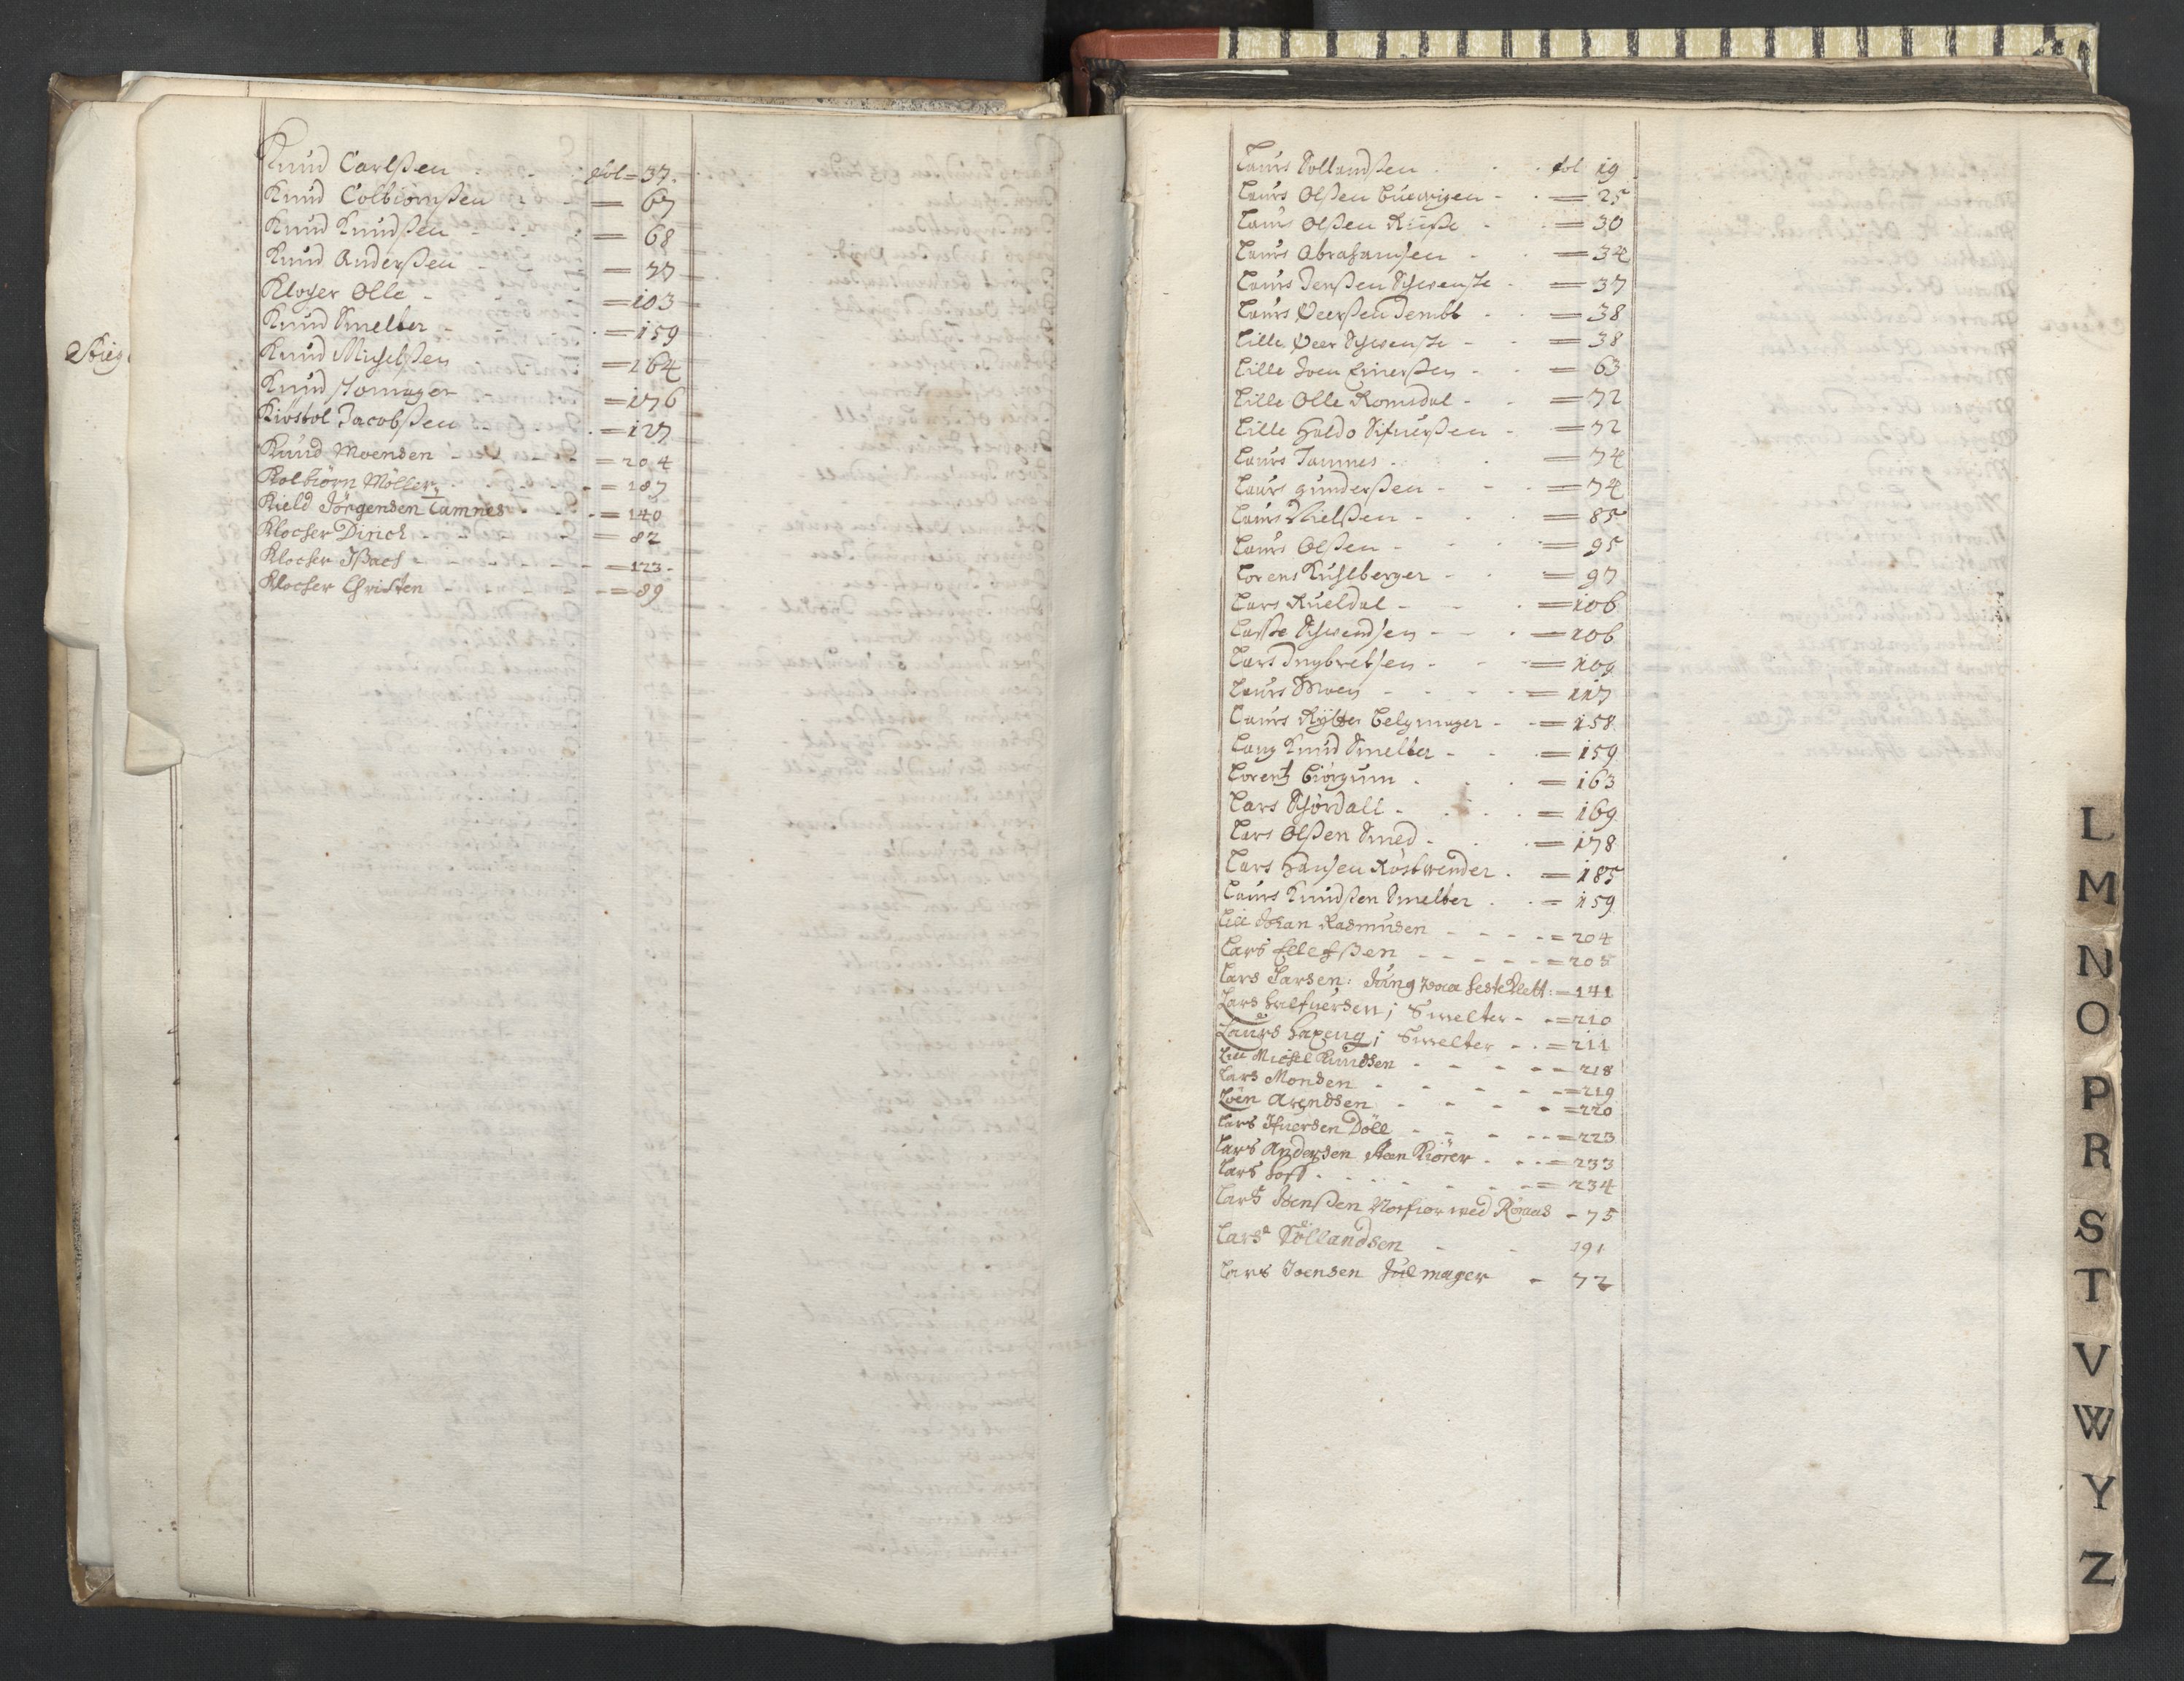 Knud Carlßen - - fol = 37.
Knud Colbiörnßen - = 67
Knud Knudßen - = 68
Knud Anderßen - = 77
Kloger Olle - = 103
Knud Smelter - = 159
Knud Michelßen = 164
Knud stomager = 176
Kiöstol Jacobßen - = 127
Knud Moensen - = 204
Kolbiörn Möller - = 187
Kield Jörgensen Tamnes - = 140
Klocher Dirich - - - = 82
Klocher Ißach - - - = 123 -
Klocher Christen - - = 89
Laurs Sollandßen - - fol 19
Laurs Olßen - = 25
Laurs Olßen Ruße - = 30
Laurs Abrahamsen - = 34
Laurs Jenßen Schwenske - = 37
Laurs Peerßen Jembt - = 38
Lille Peer Schwenske - = 38
Lille Joen Einerßen - = 63
Lille Olle Romsdal - = 72
Lille Haldo Sifuerßen - = 72
Laurs Tamnes - = 74
Laurs Gunderßen - = 74
Laurs Nielßen - = 85
Laurs Olßen - = 95
Lorens Kuhlberger - = 97
Lars Rueldal - = 106
Laße Schwendsen - = 106
Lars Ingbretsen - = 109
Laurs Moen - - = 117
Laurs Rytter belgmager - = 158
Lang Knud Smelter - = 159
Lorentz Biörgum - = 163
Lars Schördall - = 169
Lars Olßen Smed - = 178
Lars Hansen Röstwender - = 185
Laurs Knudßen Smelter - = 159
Lill Johan Rasmusen - - = 204
Lars Ellefßen - - = 205
Lars Larsen: Jung = 141
Lars Halfuersen; Smelter - = 210
Laurs Haxeng; Smelter - = 211
Lill Michel Knudsen - - = 218
Lars Monsen - - = 219
Löen Arendsen - - = 220
Lars Ifuersen Döll - - = 223
Lars Andersen Steen Kiörer - = 233
Lars Hoff - - = 234
Lars Joenßen Norfior wed Röraas - 75
Lars Söllandsen - - 191
Lars Joensen Julmager - 72
L
M
N
O
P
R
S
T
V
W
Y
Z